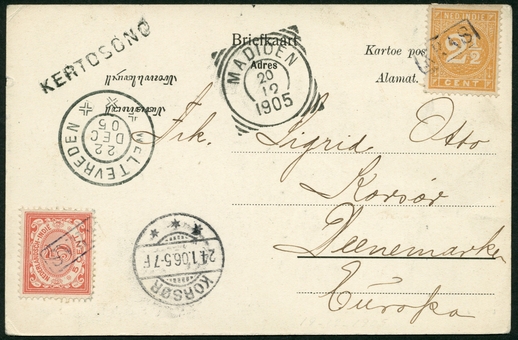 KERTOSONO
Briefkaart
Adres
MADIOEN
20
12
1905
Kartoe pos
Alamat.
NED-INDIE
2½
CENT
WELTEVREDEN
22
DEC
05
Frk. Sigrid Otto
Korsör
Deenemarka
Europa
5
KORSØR
24.1.06.5-7F